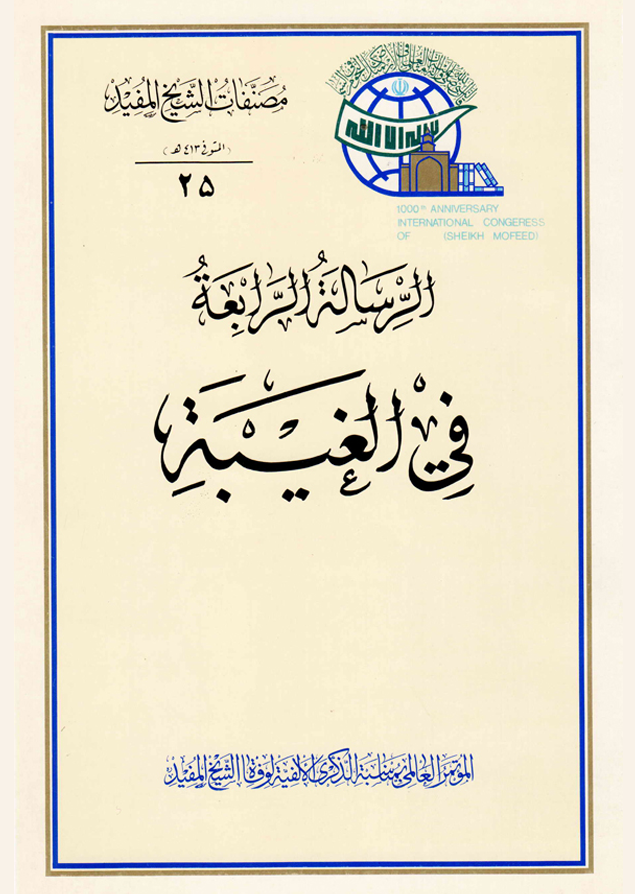 مُصَنَّفَاتُ الشَّيْخِ المُفِيْدِ
(المتوفى ٤١٣ هـ)
٢٥
لا إله إلا الله
1000th ANNIVERSARY
INTERNATIONAL CONGERESS
OF (SHEIKH MOFEED)
الرِّسَالَةُ الرَّابِعَةُ
فِي الغَيْبَةِ
المؤتمر العالمي بمناسبة الذكرى الألفية لوفاة الشيخ المفيد